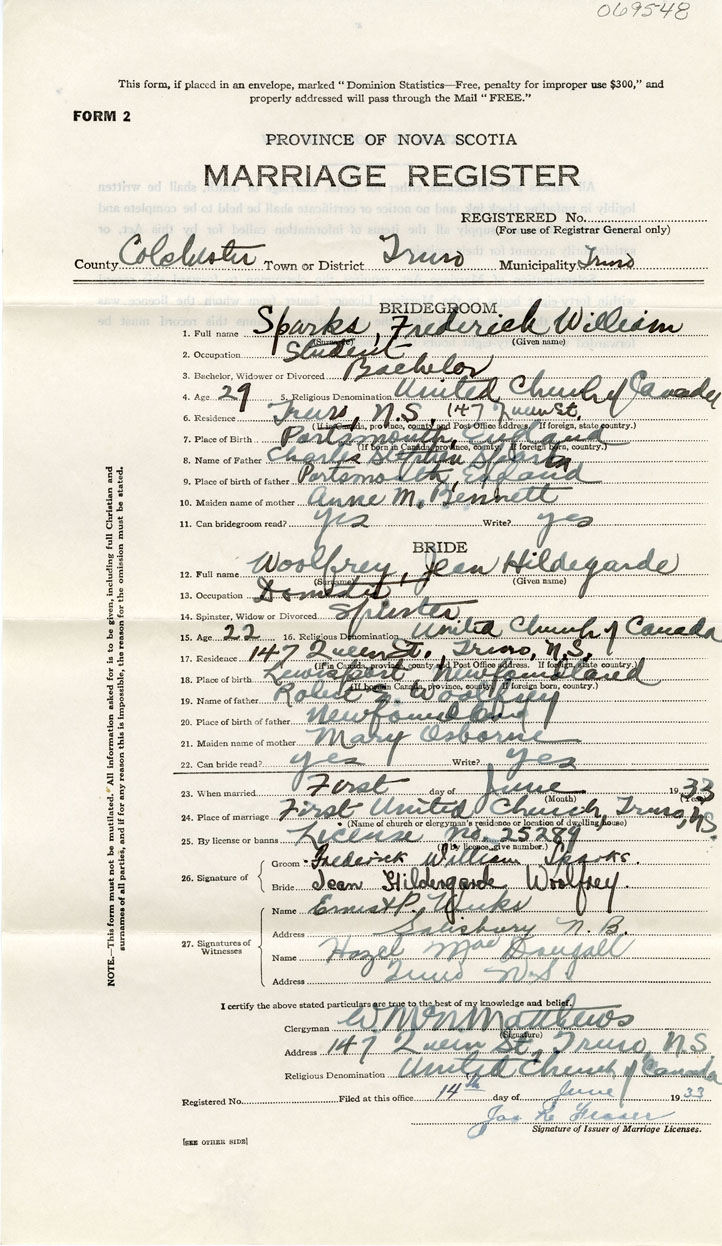 069548
This form, if placed in an envelope, marked "Dominion Statistics—Free, penalty for improper use $300," and
properly addressed will pass through the Mail "FREE."
FORM 2
PROVINCE OF NOVA SCOTIA
MARRIAGE REGISTER
REGISTERED No.
(For use of Registrar General only)
County Colchester Town or District Truro Municipality Truro
BRIDEGROOM
1. Full name Sparks, Frederick William
(Surname) (Given name)
2. Occupation Student
3. Bachelor, Widower or Divorced Bachelor
4. Age 29 5. Religious Denomination United Church of Canada
6. Residence Truro, N.S., 147 Queen St.
(If in Canada, province, county and Post Office address. If foreign, state country.)
7. Place of Birth Portsmouth, England
(If born in Canada, province, county. If foreign born, country.)
8. Name of Father Charles Stephen Sparks
9. Place of birth of father Portsmouth, England
10. Maiden name of mother Anne M. Bennett
11. Can bridegroom read? yes Write? yes
BRIDE
12. Full name Woolfrey, Jean Hildegarde
(Surname) (Given name)
13. Occupation Domestic
14. Spinster, Widow or Divorced Spinster
15. Age 22 16. Religious Denomination United Church of Canada
17. Residence 147 Queen St., Truro, N.S.
(If in Canada, province, county and Post Office address. If foreign, state country.)
18. Place of birth Lewisport, Newfoundland
(If born in Canada, province, county. If foreign born, country.)
19. Name of father Robert Woolfrey
20. Place of birth of father Newfoundland
21. Maiden name of mother Mary Osborne
22. Can bride read? yes Write? yes
23. When married First day of June 1933
(Month) (Year)
24. Place of marriage First United Church, Truro, N.S.
(Name of church or clergyman's residence or location of dwelling house)
25. By license or banns License No. 25289
(If by licence, give number.)
26. Signature of
Groom Frederick William Sparks.
Bride Jean Hildergarde Woolfrey.
27. Signatures of Witnesses
Name Ernest P. Weeks
Address Salisbury N.B.
Name Hazel MacDougall
Address Truro N.S.
I certify the above stated particulars are true to the best of my knowledge and belief.
Clergyman W. McN. Matthews
(Signature)
Address 147 Queen St, Truro, N.S
Religious Denomination United Church of Canada
Registered No. Filed at this office 14th day of June 1933
Jas Fraser
Signature of Issuer of Marriage Licenses.
[SEE OTHER SIDE]
NOTE.—This form must not be mutilated. All information asked for is to be given, including full Christian and
surnames of all parties, and if for any reason this is impossible, the reason for the omission must be stated.